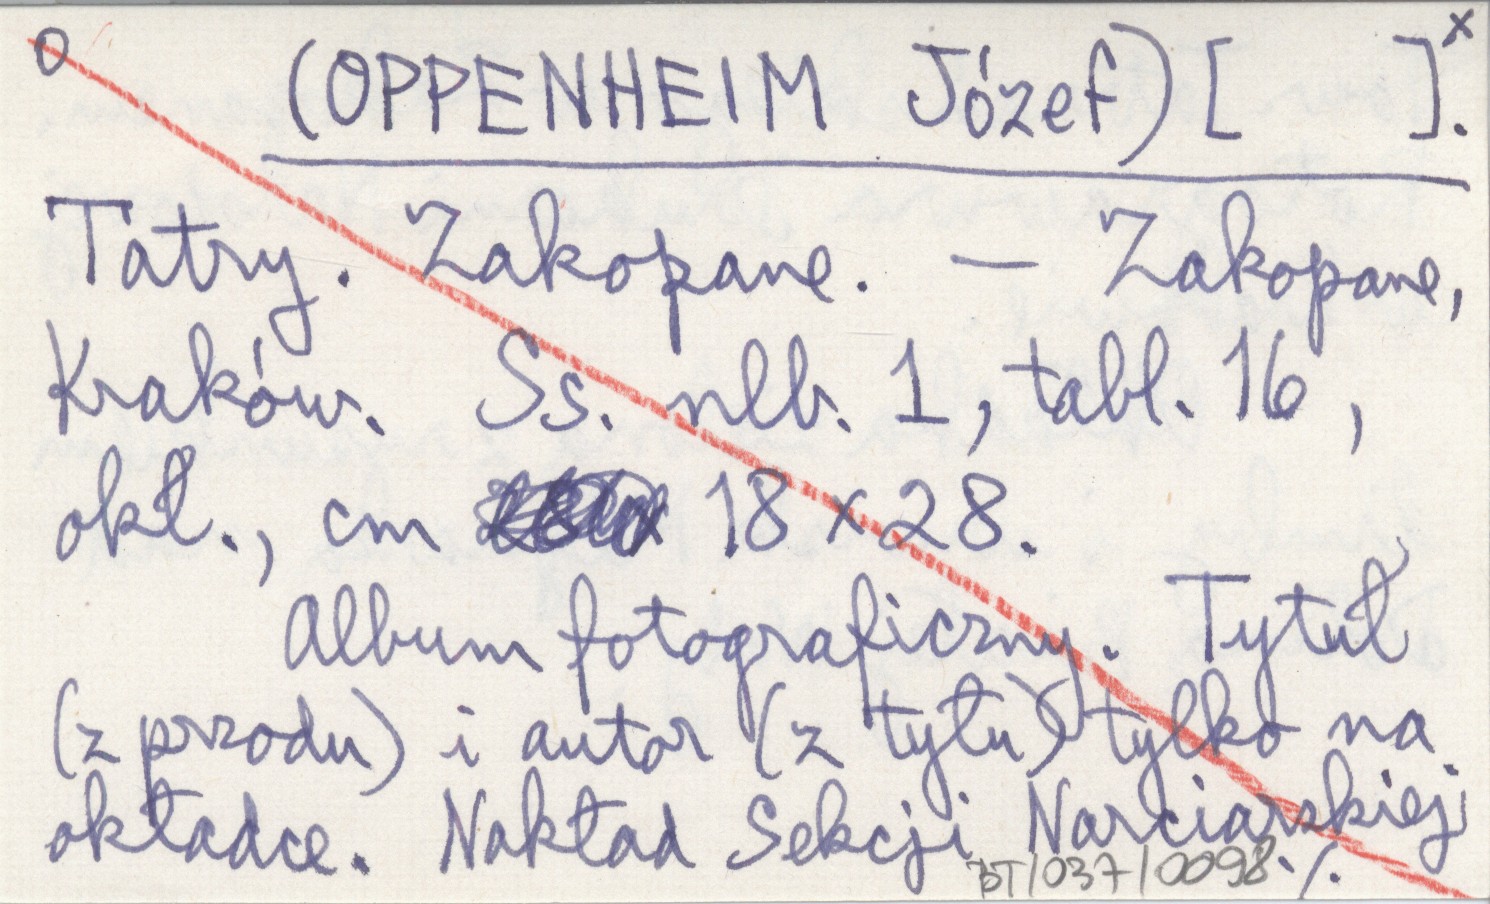 O (OPPENHEIM Józef) [ ]ˣ.
Tatry. Zakopane. — Zakopane,
Kraków. Ss. nlb. 1, tabl. 16,
okł., cm 18 x 28.
Album fotograficzny. Tytuł
(z przodu) i autor (z tyłu) tylko na
okładce. Nakład Sekcji Narciarskiej
BT/037/0098 ./.